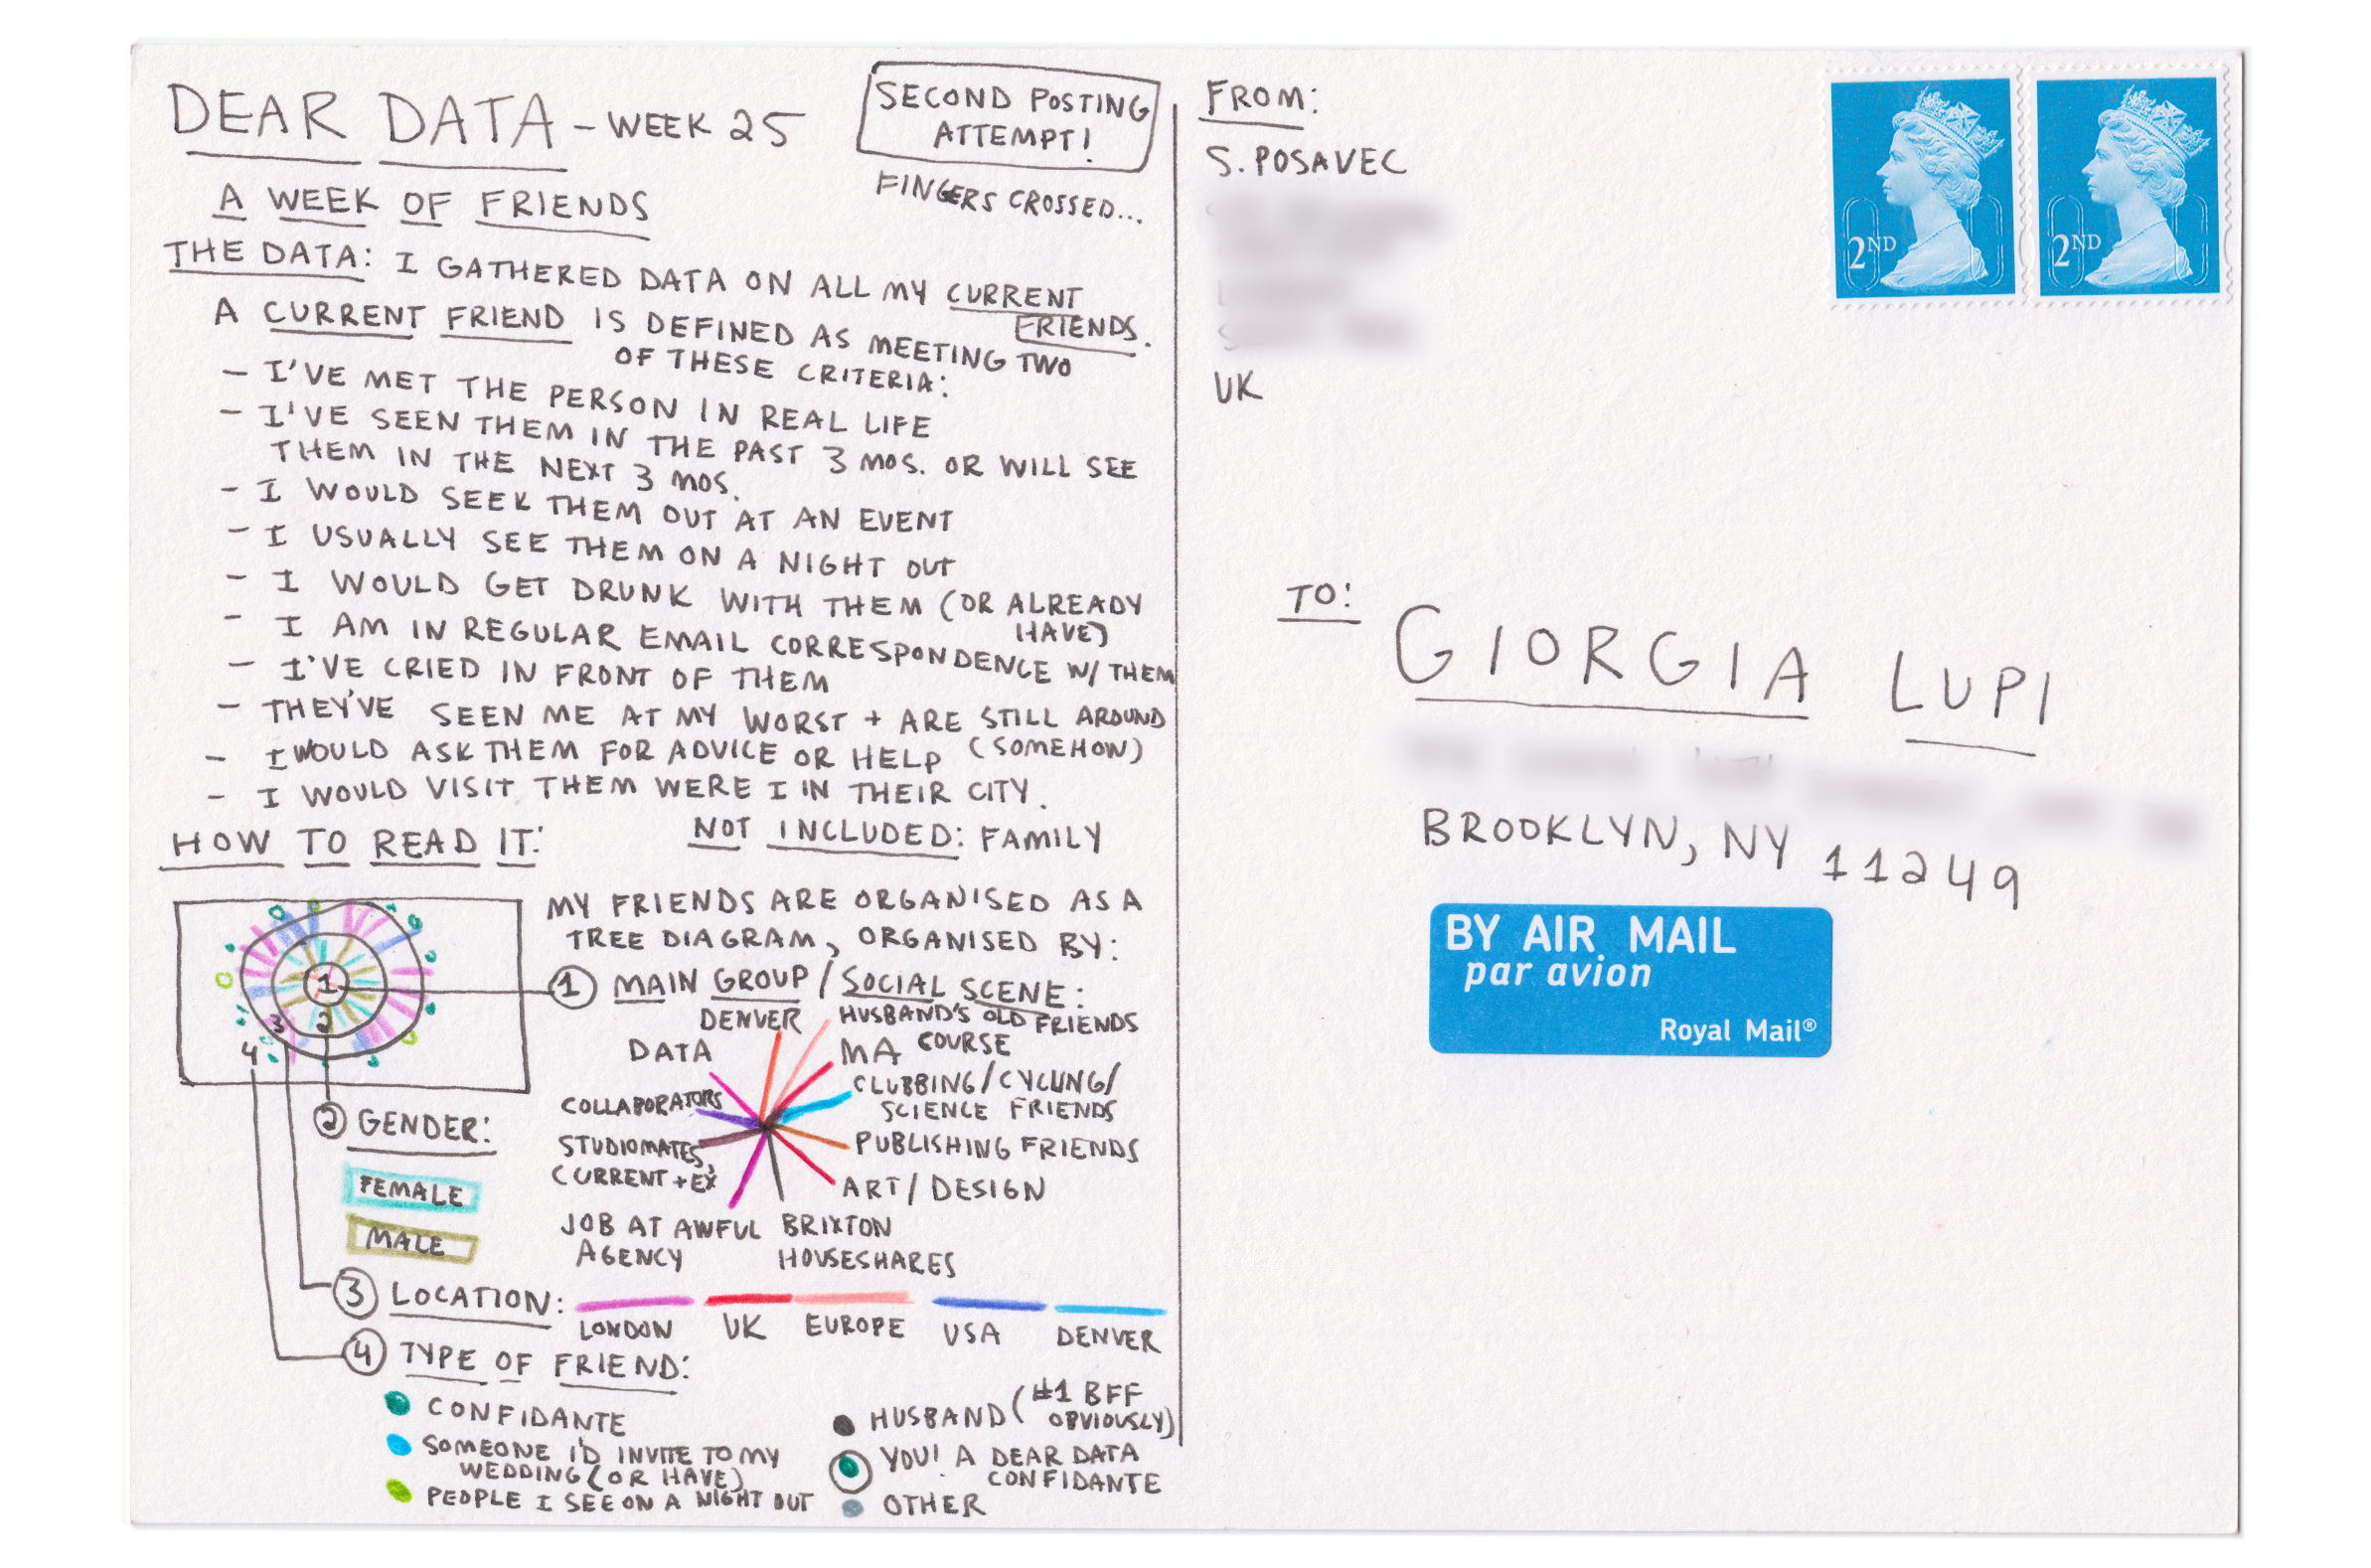 DEAR DATA - WEEK 25
SECOND POSTING
ATTEMPT!
FINGERS CROSSED...
A WEEK OF FRIENDS
THE DATA: I GATHERED DATA ON ALL MY CURRENT
FRIENDS.
A CURRENT FRIEND IS DEFINED AS MEETING TWO
OF THESE CRITERIA:
- I'VE MET THE PERSON IN REAL LIFE
- I'VE SEEN THEM IN THE PAST 3 MOS. OR WILL SEE
THEM IN THE NEXT 3 MOS.
- I WOULD SEEK THEM OUT AT AN EVENT
- I USUALLY SEE THEM ON A NIGHT OUT
- I WOULD GET DRUNK WITH THEM (OR ALREADY
HAVE)
- I AM IN REGULAR EMAIL CORRESPONDENCE W/ THEM
- I'VE CRIED IN FRONT OF THEM
- THEY'VE SEEN ME AT MY WORST + ARE STILL AROUND
(SOMEHOW)
- I WOULD ASK THEM FOR ADVICE OR HELP
- I WOULD VISIT THEM WERE I IN THEIR CITY.
NOT INCLUDED: FAMILY
HOW TO READ IT:
1
2
3
4
MY FRIENDS ARE ORGANISED AS A
TREE DIAGRAM, ORGANISED BY:
1 MAIN GROUP / SOCIAL SCENE:
DENVER
HUSBAND'S OLD FRIENDS
DATA
MA COURSE
COLLABORATORS
CLUBBING/CYCLING/
SCIENCE FRIENDS
STUDIOMATES,
CURRENT + EX
PUBLISHING FRIENDS
ART/DESIGN
JOB AT AWFUL
AGENCY
BRIXTON
HOUSESHARES
2 GENDER:
FEMALE
MALE
3 LOCATION:
LONDON
UK
EUROPE
USA
DENVER
4 TYPE OF FRIEND:
CONFIDANTE
SOMEONE I'D INVITE TO MY
WEDDING (OR HAVE)
PEOPLE I SEE ON A NIGHT OUT
HUSBAND (#1 BFF
OBVIOUSLY)
YOU! A DEAR DATA
CONFIDANTE
OTHER
FROM:
S. POSAVEC
UK
2ND
2ND
TO:
GIORGIA LUPI
BROOKLYN, NY 11249
BY AIR MAIL
par avion
Royal Mail®